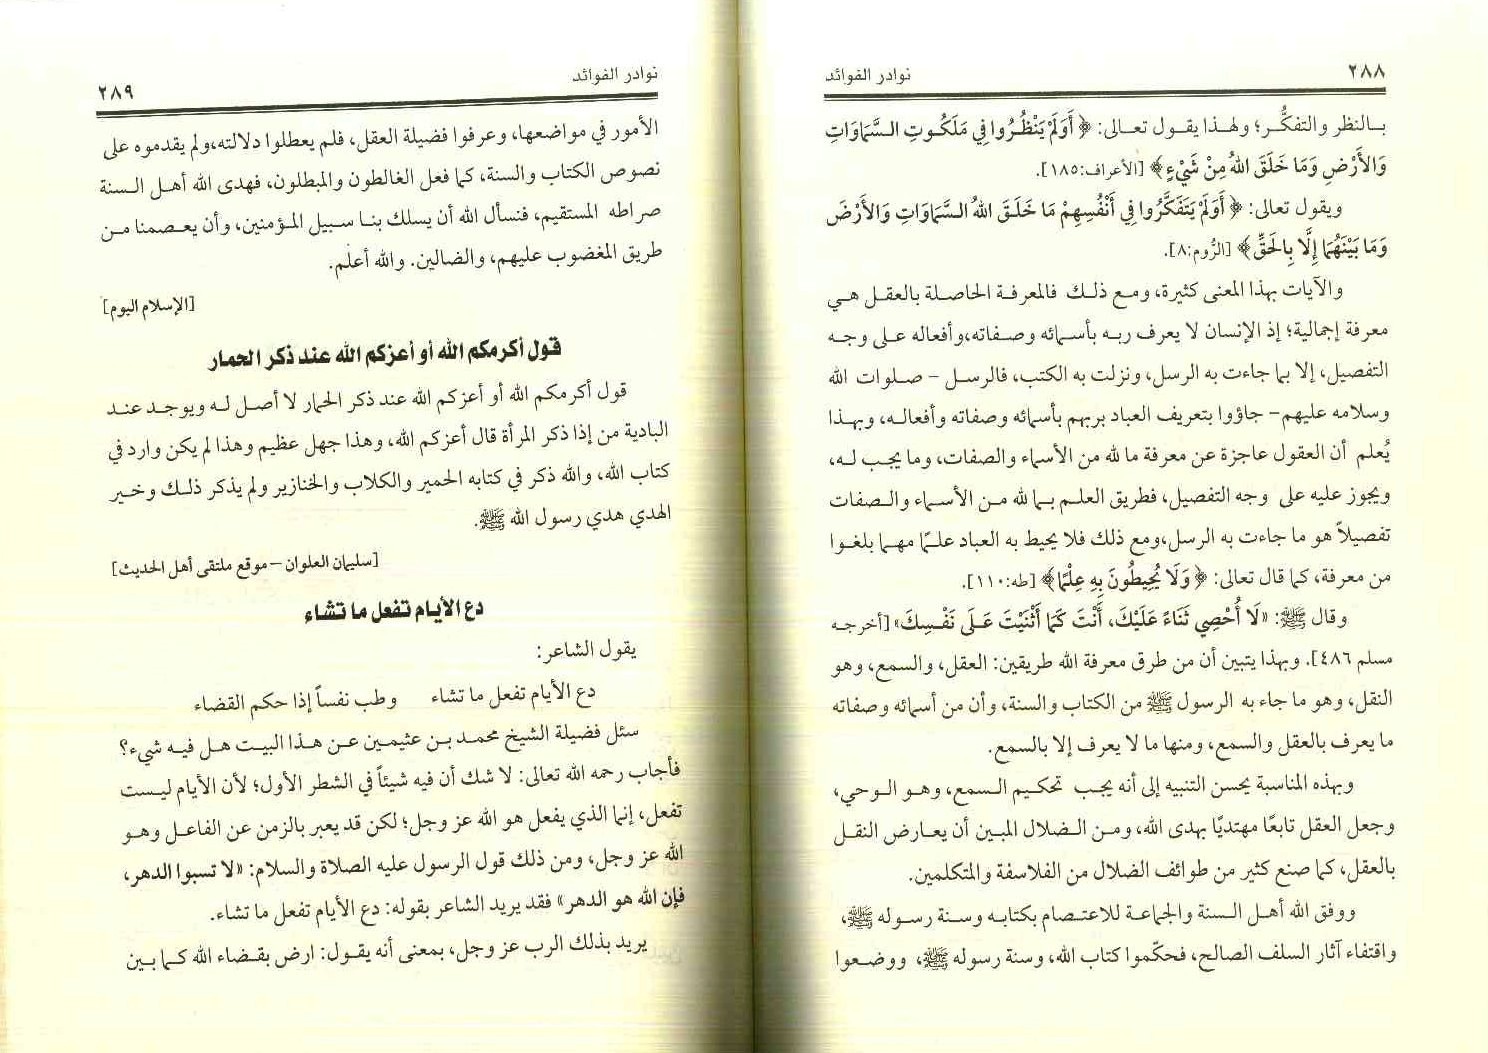 ٢٨٨
نوادر الفوائد
بالنظر والتفكُّر؛ ولهذا يقول تعالى: ﴿أَوَلَمْ يَنْظُرُوا فِي مَلَكُوتِ السَّمَاوَاتِ
وَالأَرْضِ وَمَا خَلَقَ اللهُ مِنْ شَيْءٍ﴾ [الأعراف:١٨٥].
ويقول تعالى: ﴿أَوَلَمْ يَتَفَكَّرُوا فِي أَنْفُسِهِمْ مَا خَلَقَ اللهُ السَّمَاوَاتِ وَالأَرْضَ
وَمَا بَيْنَهُمَا إِلَّا بِالحَقِّ﴾ [الرُّوم:٨].
والآيات بهذا المعنى كثيرة، ومع ذلك فالمعرفة الحاصلة بالعقل هي
معرفة إجمالية؛ إذ الإنسان لا يعرف ربه بأسمائه وصفاته،وأفعاله على وجه
التفصيل، إلا بما جاءت به الرسل، ونزلت به الكتب، فالرسل – صلوات الله
وسلامه عليهم– جاؤوا بتعريف العباد بربهم بأسمائه وصفاته وأفعاله، وبهذا
يُعلم أن العقول عاجزة عن معرفة ما لله من الأسماء والصفات، وما يجب له،
ويجوز عليه على وجه التفصيل، فطريق العلم بما لله من الأسماء والصفات
تفصيلاً هو ما جاءت به الرسل،ومع ذلك فلا يحيط به العباد علمًا مهما بلغوا
من معرفة، كما قال تعالى: ﴿وَلَا يُحِيطُونَ بِهِ عِلْمًا﴾ [طه:١١٠].
وقال ﷺ: «لَا أُحْصِي ثَنَاءً عَلَيْكَ، أَنْتَ كَمَا أَثْنَيْتَ عَلَى نَفْسِكَ» [أخرجه
مسلم ٤٨٦]. وبهذا يتبين أن من طرق معرفة الله طريقين: العقل، والسمع، وهو
النقل، وهو ما جاء به الرسول ﷺ من الكتاب والسنة، وأن من أسمائه وصفاته
ما يعرف بالعقل والسمع، ومنها ما لا يعرف إلا بالسمع.
وبهذه المناسبة يحسن التنبيه إلى أنه يجب تحكيم السمع، وهو الوحي،
وجعل العقل تابعًا مهتديًا بهدى الله، ومن الضلال المبين أن يعارض النقل
بالعقل، كما صنع كثير من طوائف الضلال من الفلاسفة والمتكلمين.
ووفق الله أهل السنة والجماعة للاعتصام بكتابه وسنة رسوله ﷺ،
واقتفاء آثار السلف الصالح، فحكّموا كتاب الله، وسنة رسوله ﷺ، ووضعوا
نوادر الفوائد
٢٨٩
الأمور في مواضعها، وعرفوا فضيلة العقل، فلم يعطلوا دلالته،ولم يقدموه على
نصوص الكتاب والسنة، كما فعل الغالطون والمبطلون، فهدى الله أهل السنة
صراطه المستقيم، فنسأل الله أن يسلك بنا سبيل المؤمنين، وأن يعصمنا من
طريق المغضوب عليهم، والضالين. والله أعلم.
[الإسلام اليوم]
قول أكرمكم الله أو أعزكم الله عند ذكر الحمار
قول أكرمكم الله أو أعزكم الله عند ذكر الحمار لا أصل له ويوجد عند
البادية من إذا ذكر المرأة قال أعزكم الله، وهذا جهل عظيم وهذا لم يكن وارد في
كتاب الله، والله ذكر في كتابه الحمير والكلاب والخنازير ولم يذكر ذلك وخير
الهدي هدي رسول الله ﷺ.
[سليمان العلوان – موقع ملتقى أهل الحديث]
دع الأيام تفعل ما تشاء
يقول الشاعر:
دع الأيام تفعل ما تشاء وطب نفساً إذا حكم القضاء
سئل فضيلة الشيخ محمد بن عثيمين عن هذا البيت هل فيه شيء؟
فأجاب رحمه الله تعالى: لا شك أن فيه شيئاً في الشطر الأول؛ لأن الأيام ليست
تفعل، إنما الذي يفعل هو الله عز وجل؛ لكن قد يعبر بالزمن عن الفاعل وهو
الله عز وجل، ومن ذلك قول الرسول عليه الصلاة والسلام: «لا تسبوا الدهر،
فإن الله هو الدهر» فقد يريد الشاعر بقوله: دع الأيام تفعل ما تشاء.
يريد بذلك الرب عز وجل، بمعنى أنه يقول: ارض بقضاء الله كما بين